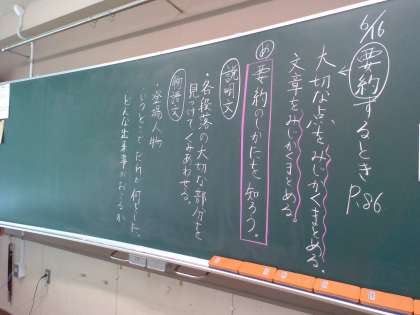 6/16
要約するとき P.86
大切な点をみじかくまとめる。
文章をみじかくまとめる。
め 要約のしかたを知ろう。
説明文
・各段落の大切な部分を
見つけてくみあわせる。
物語文
・登場人物
いつどこでだれが何をした。
どんな出来事がおこるか